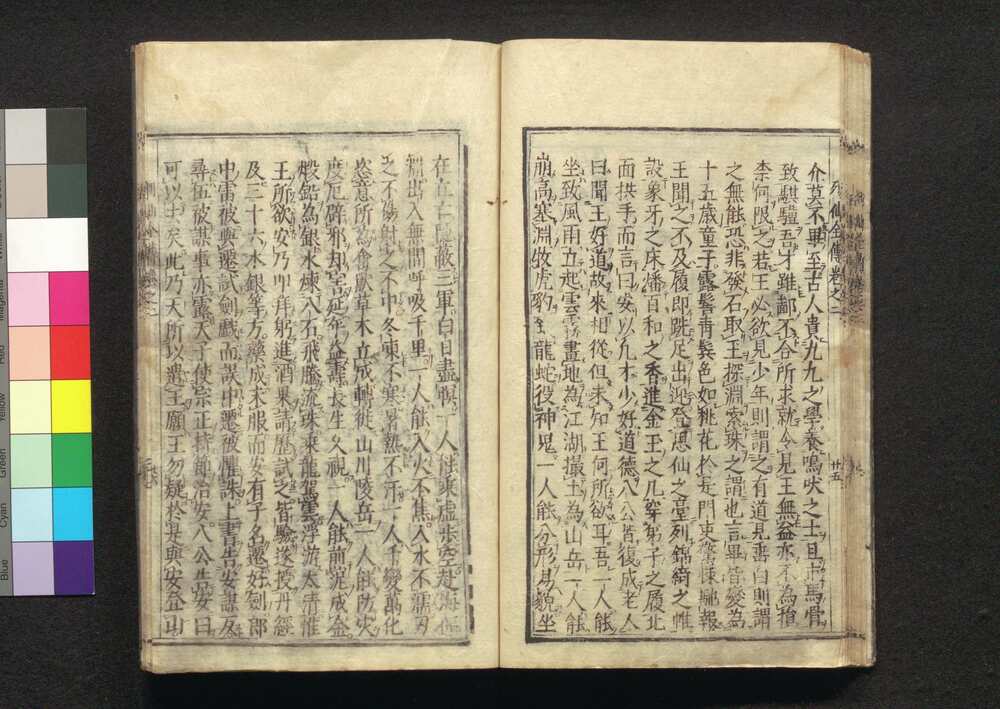 列仙全傳卷之二 廿五
介莫不畢至古人貴九九之學養鳴吠之士且市馬骨
致騏驥吾才雖鄙不合所求就令見王無益亦不為損
柰何限之若王必欲見少年則謂之有道見垂白則謂
之無能恐非發石取玉探淵索珠之謂也言畢皆變為
十五歲童子露髻青鬢色如桃花於是門吏驚悚馳報
王聞之不及履即跣足出迎登思仙之臺列錦綺之帷
設象牙之床燔百和之香進金玉之几穿弟子之履北
面拱手而言曰安以凡才少好道德八公皆復成老人
曰聞王好道故來相從但未知王何所欲耳吾一人能
坐致風雨立起雲霧畫地為江湖撮土為山岳一人能
崩高塞淵收虎豹至龍蛇役神鬼一人能分形易貌坐
在立亡隱蔽三軍白日盡暝一人能乘虛步空越海
出入無間呼吸千里一人能入火不焦入水不濡刃
之不傷射之不中冬凍不寒暑熱不汗一人千變萬化
恣意所為禽獸草木立成轉徙山川陵岳一人能防災
度厄辟邪却害延年益壽長生久視一人能煎泥成金
煅鉛為銀水煉八石飛騰流珠乘龍駕雲浮游太清惟
王所欲安乃叩拜躬進酒果請歷試之皆驗遂授丹經
及三十六水銀等方藥成未服而安有子名遷好劍郎
中雷被與遷試劍戲而誤中遷被懼誅上書告安謀反
尋伍被謀事亦露天子使宗正持節治安八公告安曰
可以去矣此乃天所以遣王願王勿疑於是與安登山